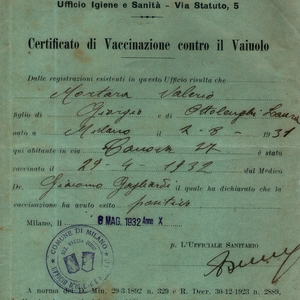 Ufficio Igiene e Sanità - Via Statuto, 5
Certificato di Vaccinazione contro il Vaiuolo
Dalle registrazioni esistenti in questo Ufficio risulta che
Mortara Valerio
figlio di Giorgio e di Ottolenghi Laura
nato a Milano il 2-8-1931
qui abitante in via Canova 27 è stato
vaccinato il 29-4-1932 dal Medico
Dr. Giacomo Gagliardi il quale ha dichiarato che la
vaccinazione ha avuto esito positivo
Milano, 6 MAG. 1932 Anno X
COMUNE DI MILANO
p. L'UFFICIALE SANITARIO
A norma dei D. Min. 29-3-1892 n. 329 e R. Decr. 30-12-1923 n. 2889,